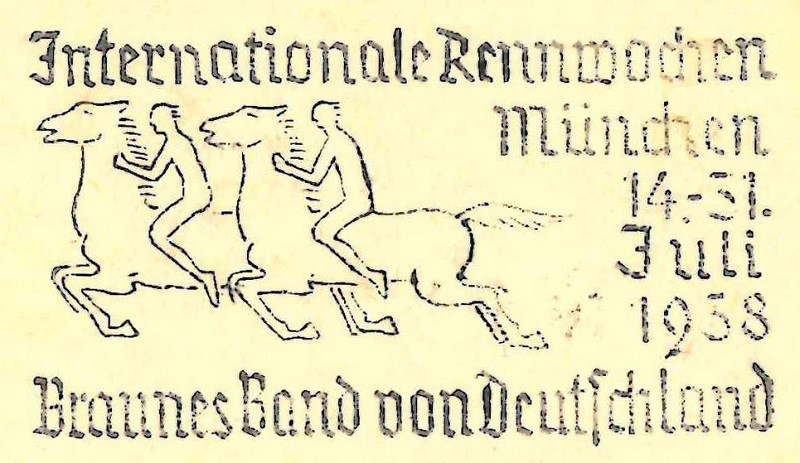 Internationale Rennwochen
München
14.-31.
Juli
1938
Braunes Band von Deutschland